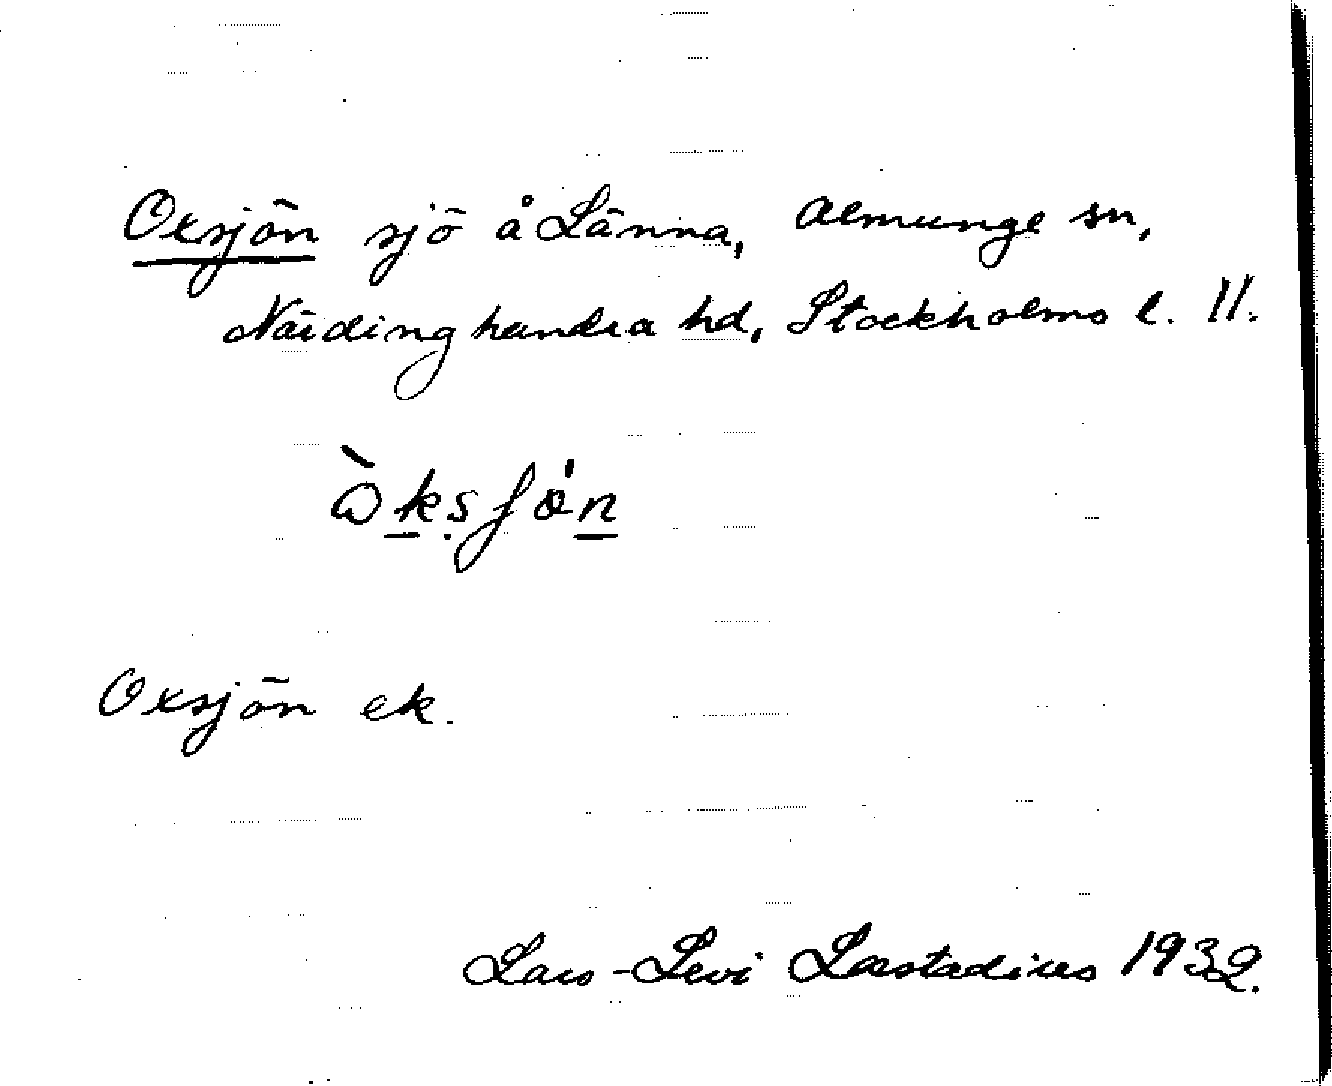 Oxsjön sjö å Länna, Almunge sn,
Närdinghundra hd, Stockholms l. 11.
ò̀ksʃön
Oxsjön ek.
Lars-Levi Læstadius 1932.